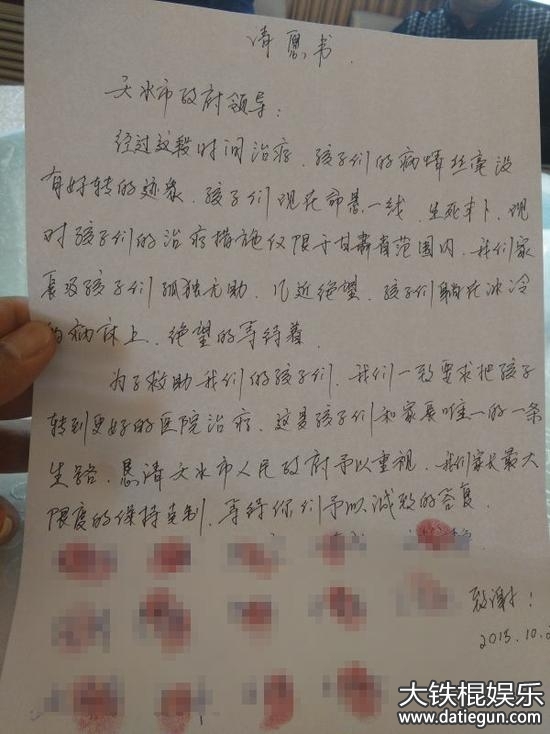 请愿书.
天水市政府领导:
经过这段时间治疗,孩子们的病情丝毫没
有好转的迹象,孩子们现在命悬一线,生死未卜,现
对孩子们的治疗措施仅限于甘肃省范围内,我们家
长及孩子们孤独无助,几近绝望,孩子们躺在冰冷
的病床上,绝望的等待着.
为了救助我们的孩子们,我们一致要求把孩子
转到更好的医院治疗,这是孩子们和家长唯一的一条
生路,恳请天水市人民政府予以重视,我们家长最大
限度的保持克制,等待你们予以诚致的答复.
致谢!
2015.10.2
大铁棍娱乐
www.datiegun.com